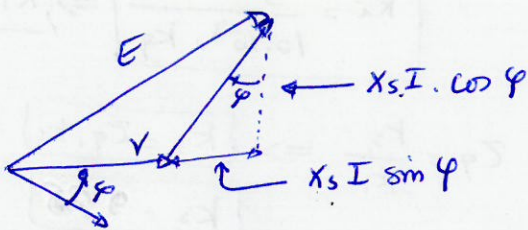 E
φ
Xs I . cos φ
V
φ
Xs I sin φ